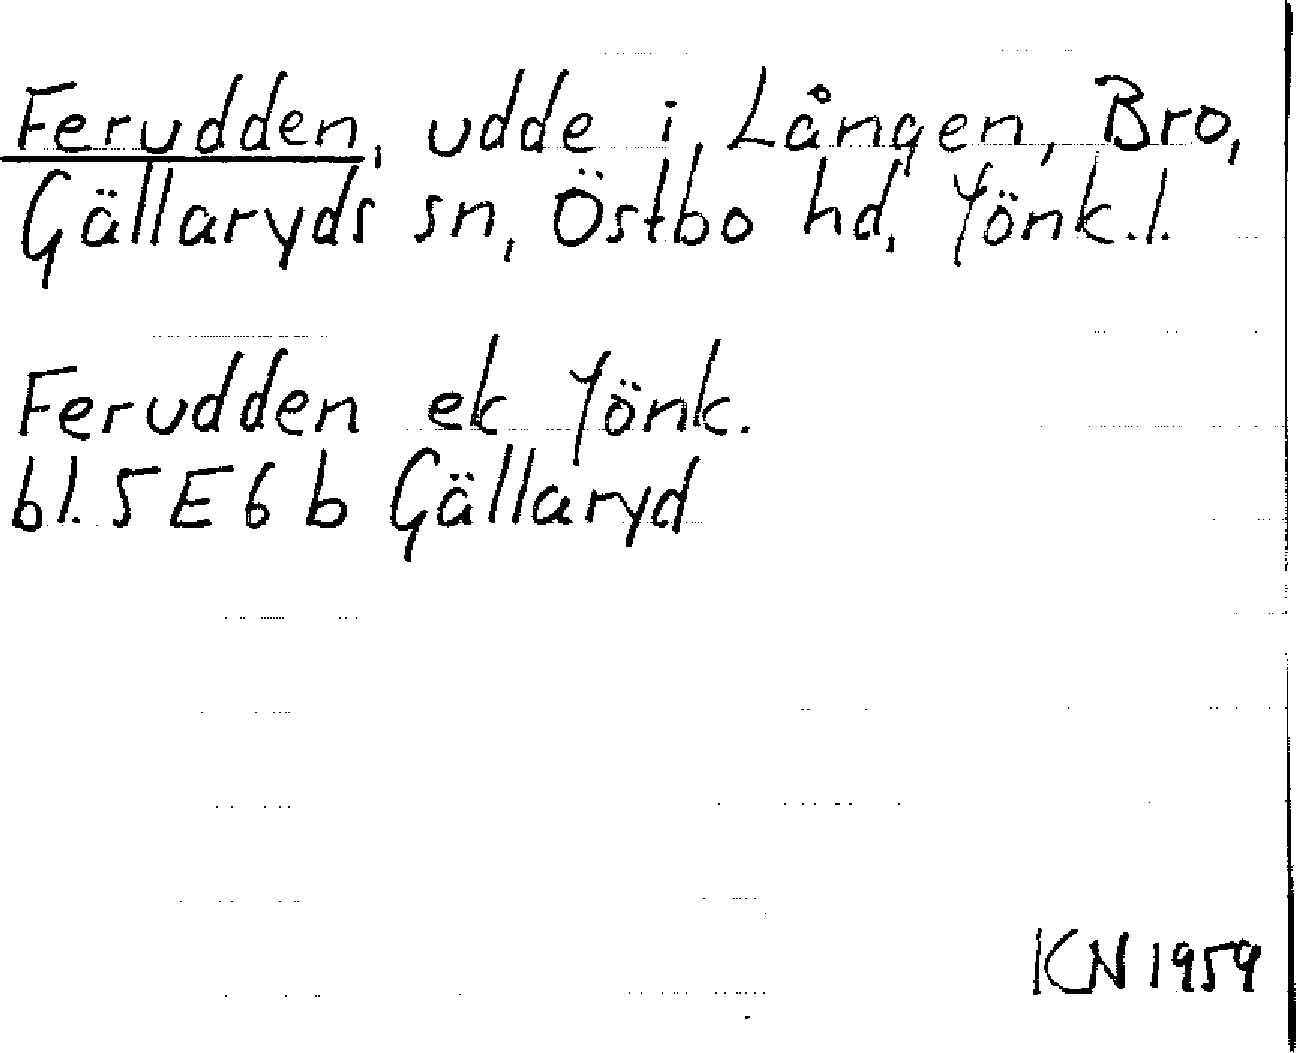 Ferudden, udde i Lången, Bro,
Gällaryds sn, Östbo hd, Jönk.l.
Ferudden ek Jönk.
bl. 5 E 6 b Gällaryd
KN 1959